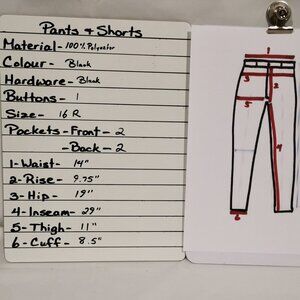 Pants & Shorts
Material - 100% Polyester
Colour - Black
Hardware - Black
Buttons - 1
Size - 16 R
Pockets - Front - 2
- Back - 2
1 - Waist - 14"
2 - Rise - 9.75"
3 - Hip - 19"
4 - Inseam - 29"
5 - Thigh - 11"
6 - Cuff - 8.5"
1
2
3
5
4
6